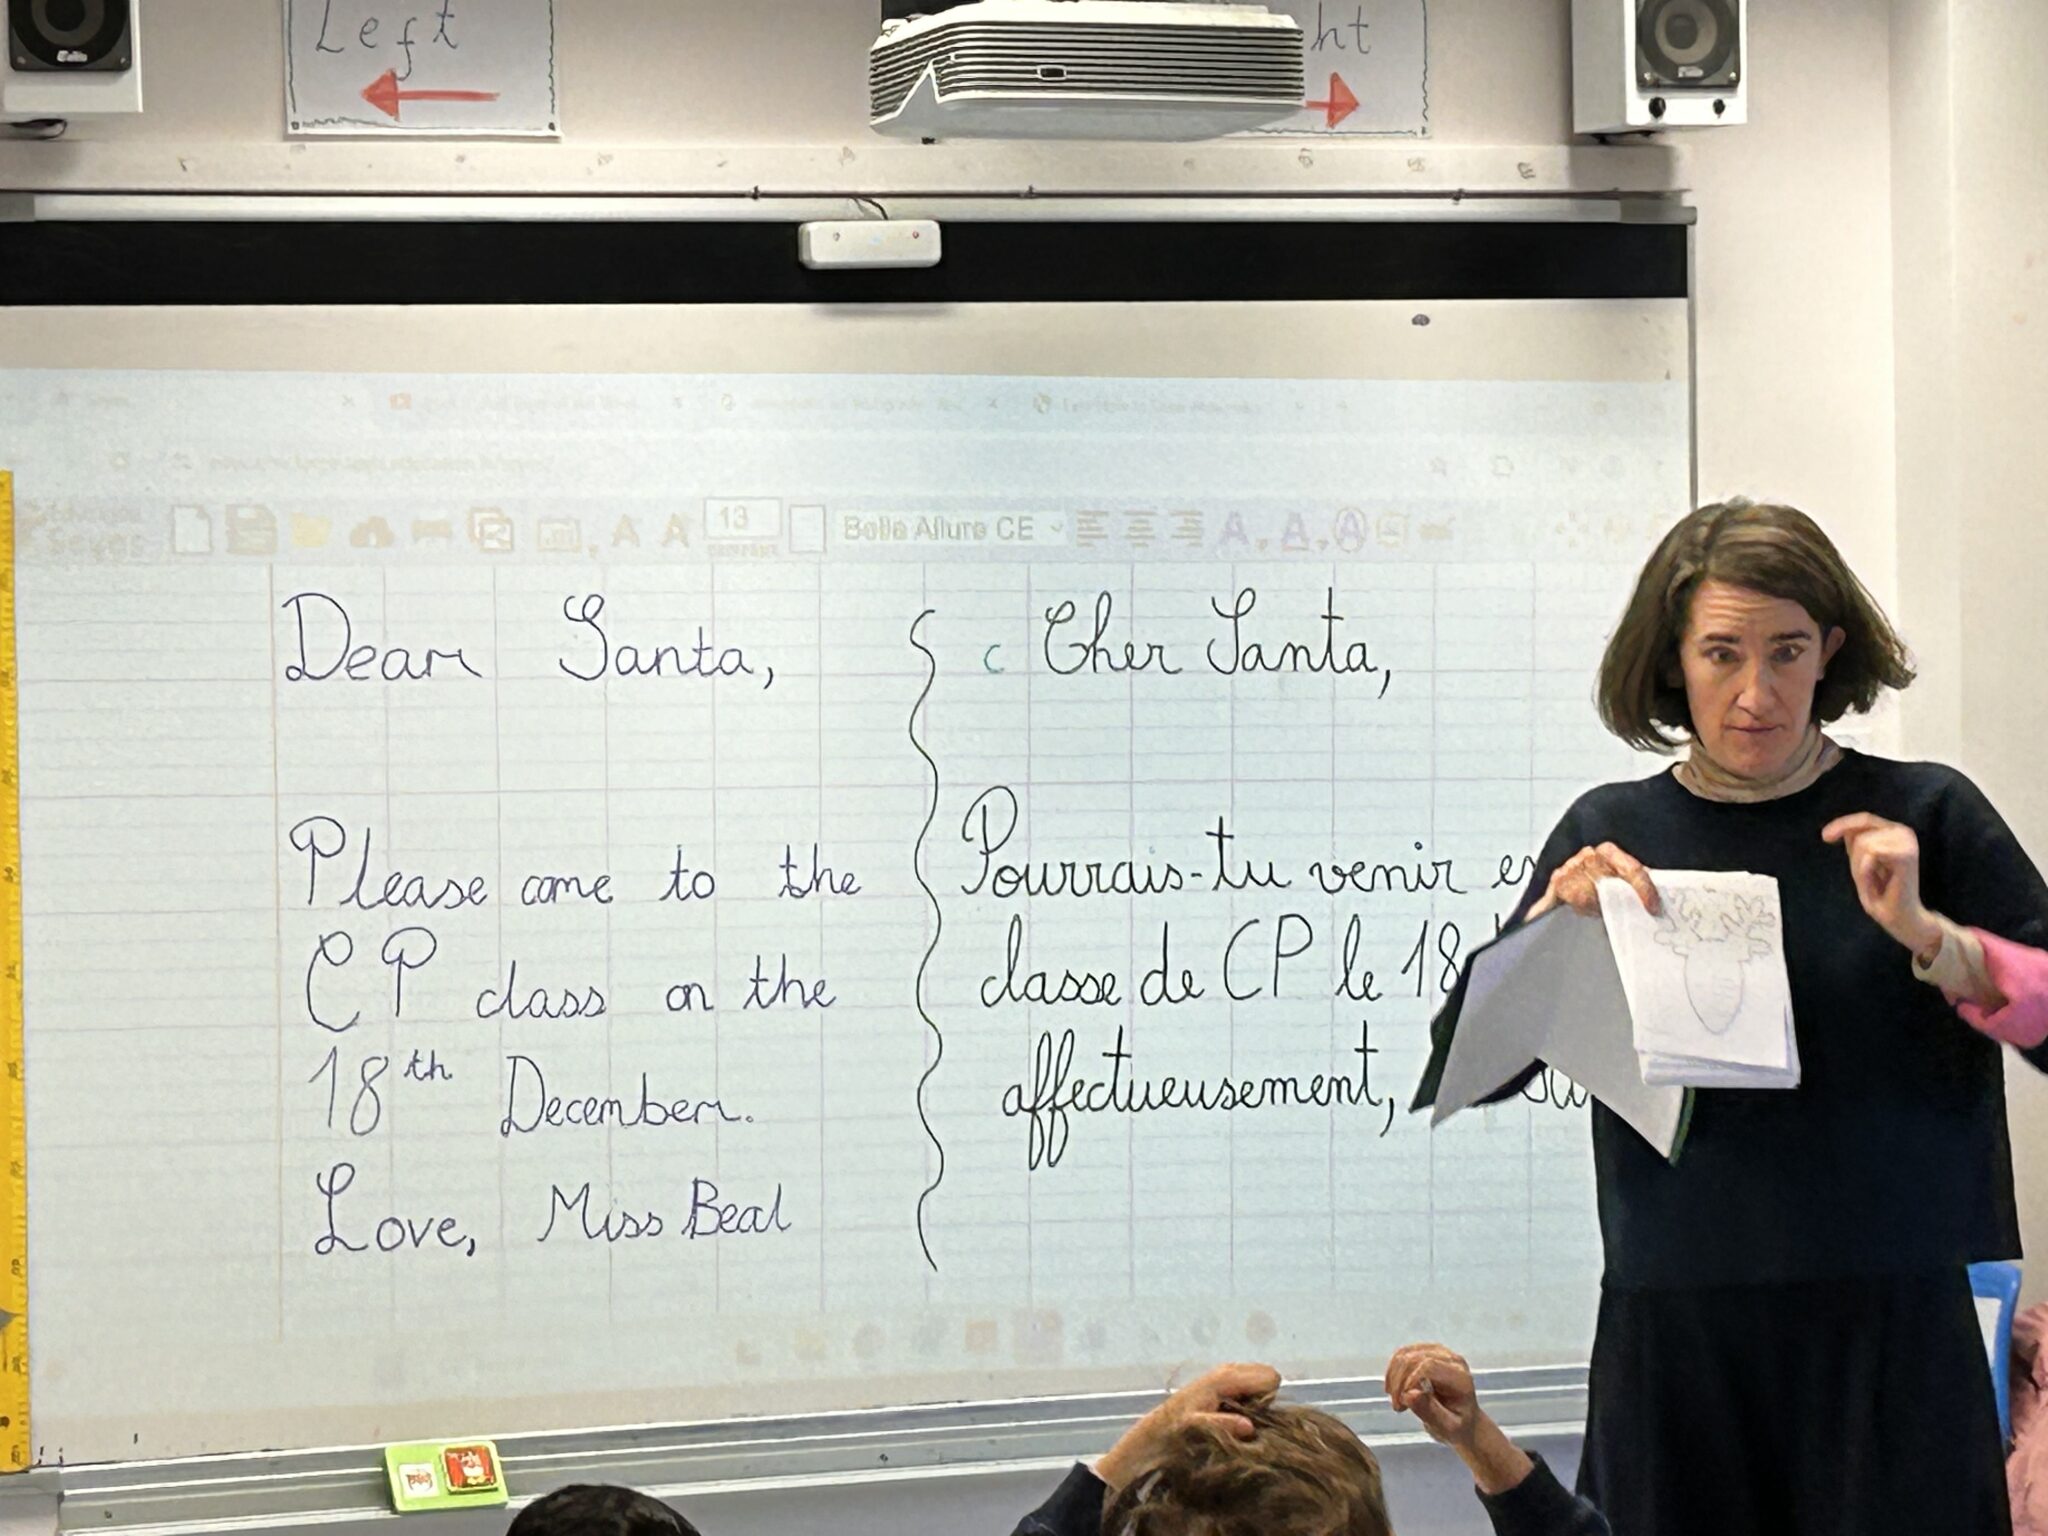 Left
ht
13
Belle Allure CE
Dear Santa,
Please come to the
CP class on the
18th December.
Love, Miss Beal
c Cher Santa,
Pourrais-tu venir en
classe de CP le 18
affectueusement,